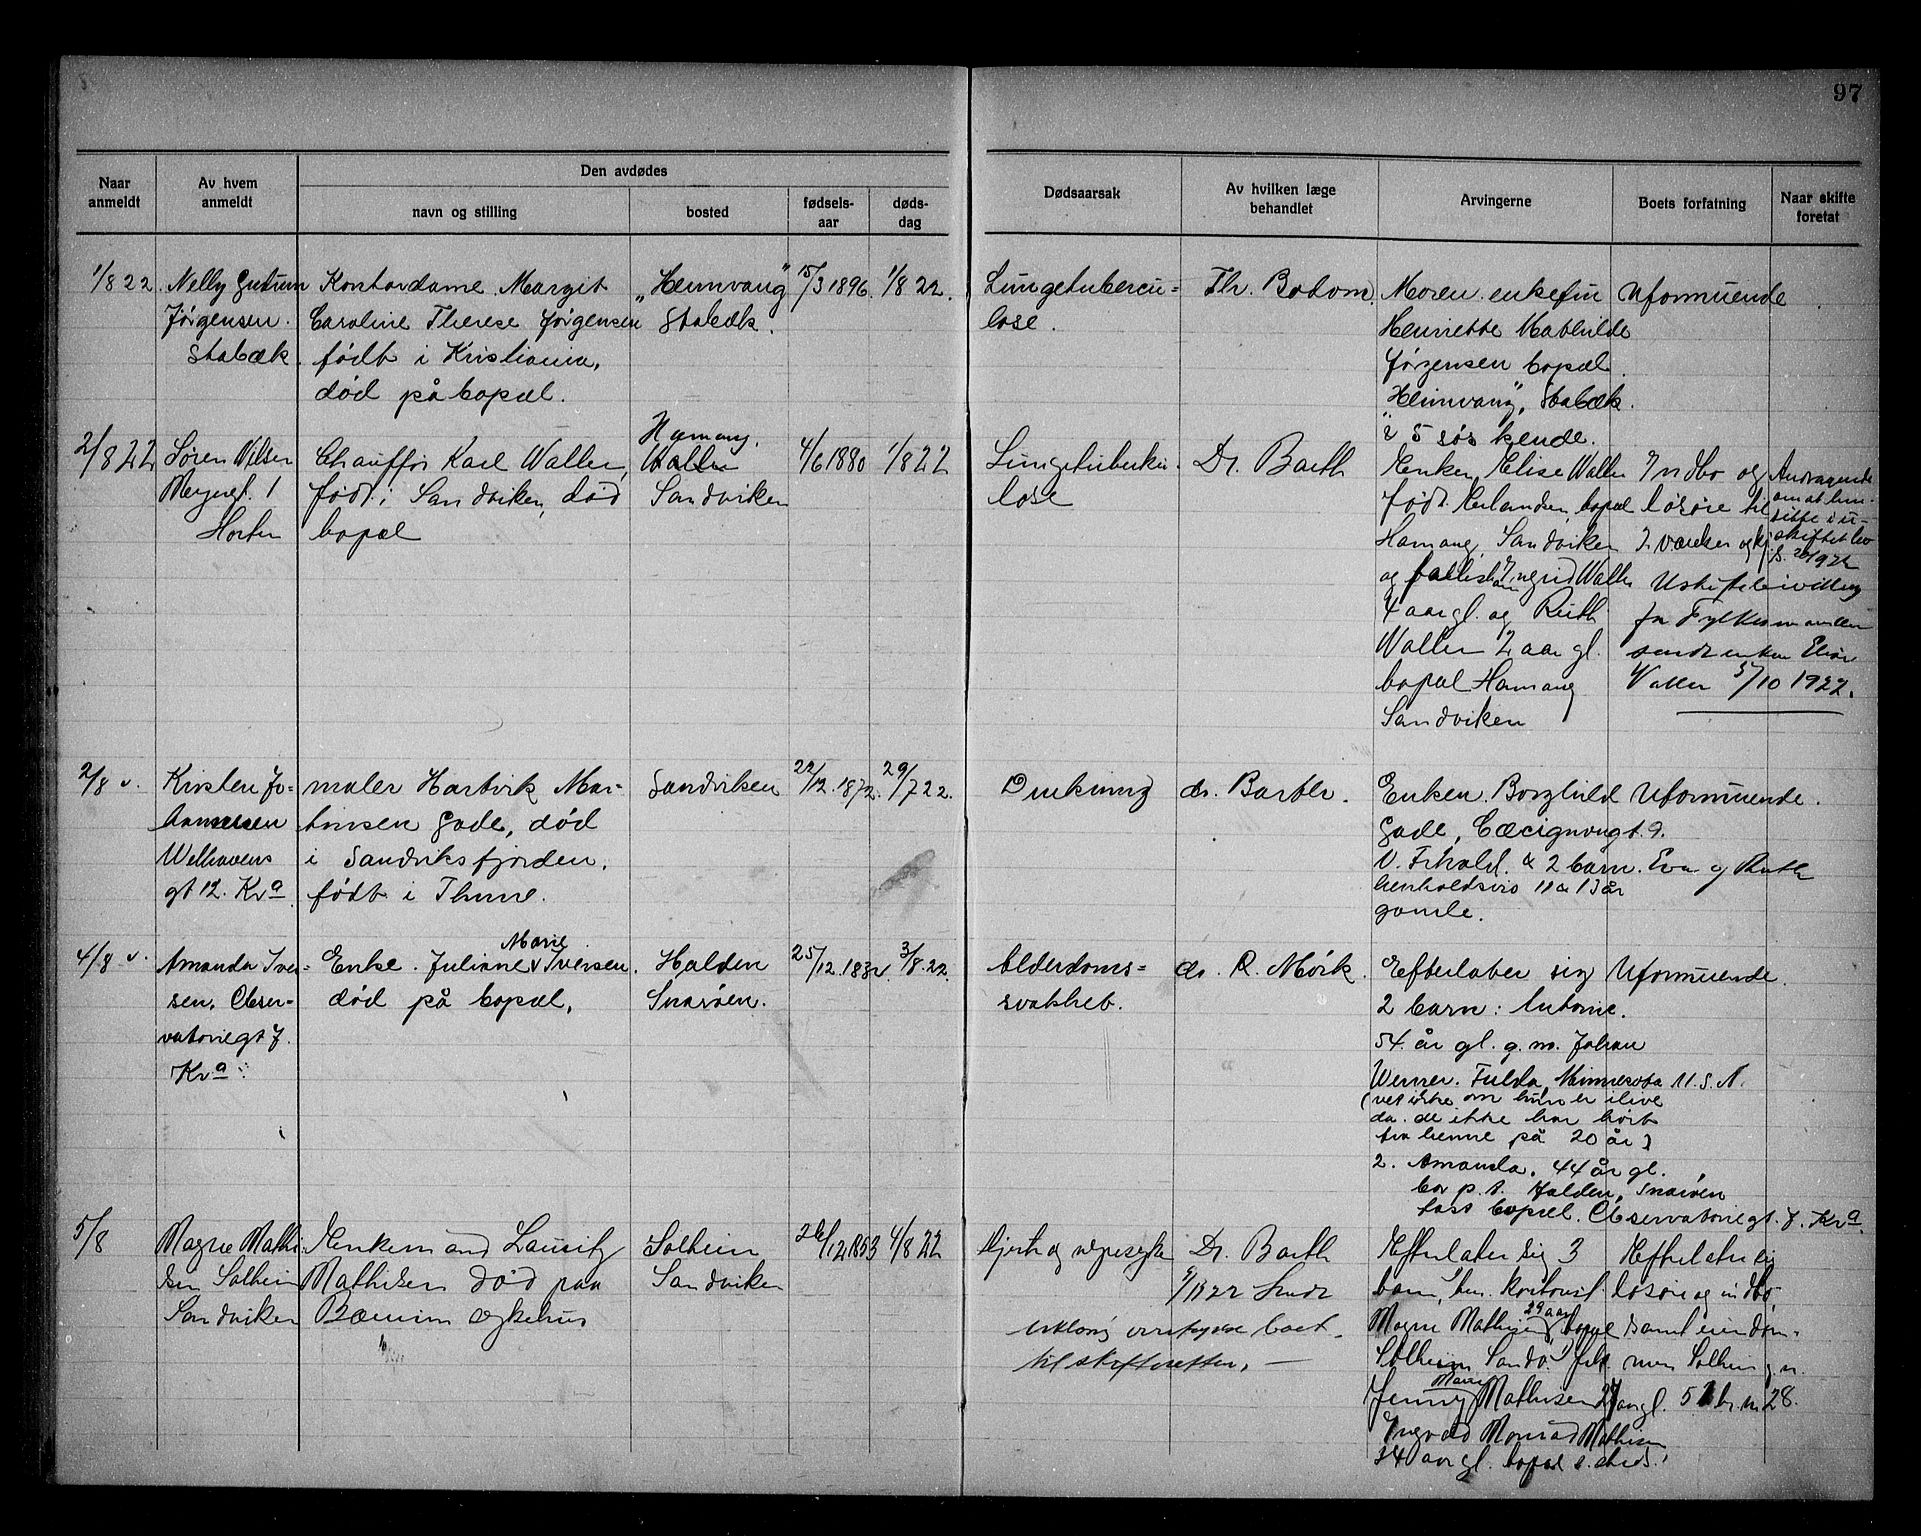 97
Naar anmeldt
Av hvem anmeldt
Den avdødes
navn og stilling
bosted
fødsels-aar
døds-dag
Dødsaarsak
Av hvilken læge behandlet
Arvingerne
Boets forfatning
Naar skifte foretat
1/8 22.
Nelly
Jørgensen.
Stabæk.
Kontordame Margit
Caroline Therese Jørgensen
født i Kristiania,
død på bopæl.
"Heimvang"
Stabæk.
15/3 1896.
1/8 22.
Lungetubercu=
lose.
Th. Botom
Moren enkefru
Henriette Mathilde
Jørgensen bopæl.
"Heimvang", Stabæk.
& 5 søskende.
Uformuende
2/8 22
Søren Nilsen
1
Horten
Chauffør Karl Waller,
født i Sandviken, død
bopæl
Hamang.
Sandviken
4/6 1880
1/8 22
Lungetuberku
lose
Dr. Barth
Enken Elise Waller
født bopæl
Hamang, Sandviken
og Ingrid Waller
4 aar gl. og Ruth
Waller 2 aar gl.
bopæl Hamang
Sandviken
Indbo og
løsøre til
2 værelser og kj
Andragende
om at hen-
sitte i u-
skiftet bo
Uskiftebevilling
fra Fylkesmanden
sendt enken Elise
Waller 5/10 1922.
2/8 v.
Kristen Jo-
hannesen
Welhavens
gt 12. Kra
maler Hartvik Mar-
tinsen Gade, død
i Sandviksfjorden,
født i
Sandviken
22/12.1872.
29/7 22.
Drukning
dr. Barth.
Enken Borghild
Gade, 9.
& 2 barn. Eva og Ruth
henholdsvis 11 & 13 år
gamle.
Uformuende.
4/8 v.
Amanda Iver=
sen, Obser-
vatoriegt 7.
Kra.
Enke. Juliane Marie Iversen.
død på bopæl.
Halden
Snarøen.
25/12.1832.
3/8.22.
Alderdoms=
svakhet.
dr. R. Mörk.
Efterlater sig
2 barn: Antonie.
54 år gl. g.m. Johan
Werner. Fulda, Minnesota U.S.A.
(vet ikke om hun er ilive
da de ikke har hørt
fra henne på 20 år)
2. Amanda. 44 år gl.
bor p.t. Halden, Snarøen
fast bopæl. Observatoriegt. 7. Kra
Uformuende.
5/8
Magne Mathi
sen Solheim
Sandviken
Enkemand Lauritz
Mathisen død paa
Bærum sykehus
Solheim
Sandviken
26/12 1853
4/8 22
Hjerte og nyresyke
Dr. Barth
22 sendt
boet
til skifteretten. —
Efterlater sig 3
barn,
Magne Mathisen 29 aar bopæl
Solheim
Jenny Marie Mathisen 27 aar gl.
Ingvald Monrad Mathisen
24 aar gl. bopæl
Efterlater sig
løsøre og indbo
samt eiendom-
men Solheim g.n.
br.n. 28.